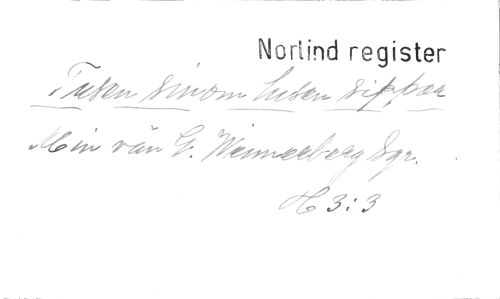 Norlind register
Tusen sinom tusen sippor
Min vän G. Wennerberg sgr.
H 3:3